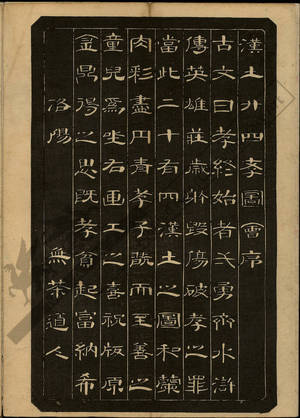 漢土廿四孝圖會序
古文曰孝終始者勇齊水滸
傳英雄莊毀傷破孝之罪
當此二十有四漢土之圖和
肉彩盡青孝子而至善之
童兒爲坐右画工之喜祝版原
金鼎得之思既孝貧起富納希
洛陽 無茶道人